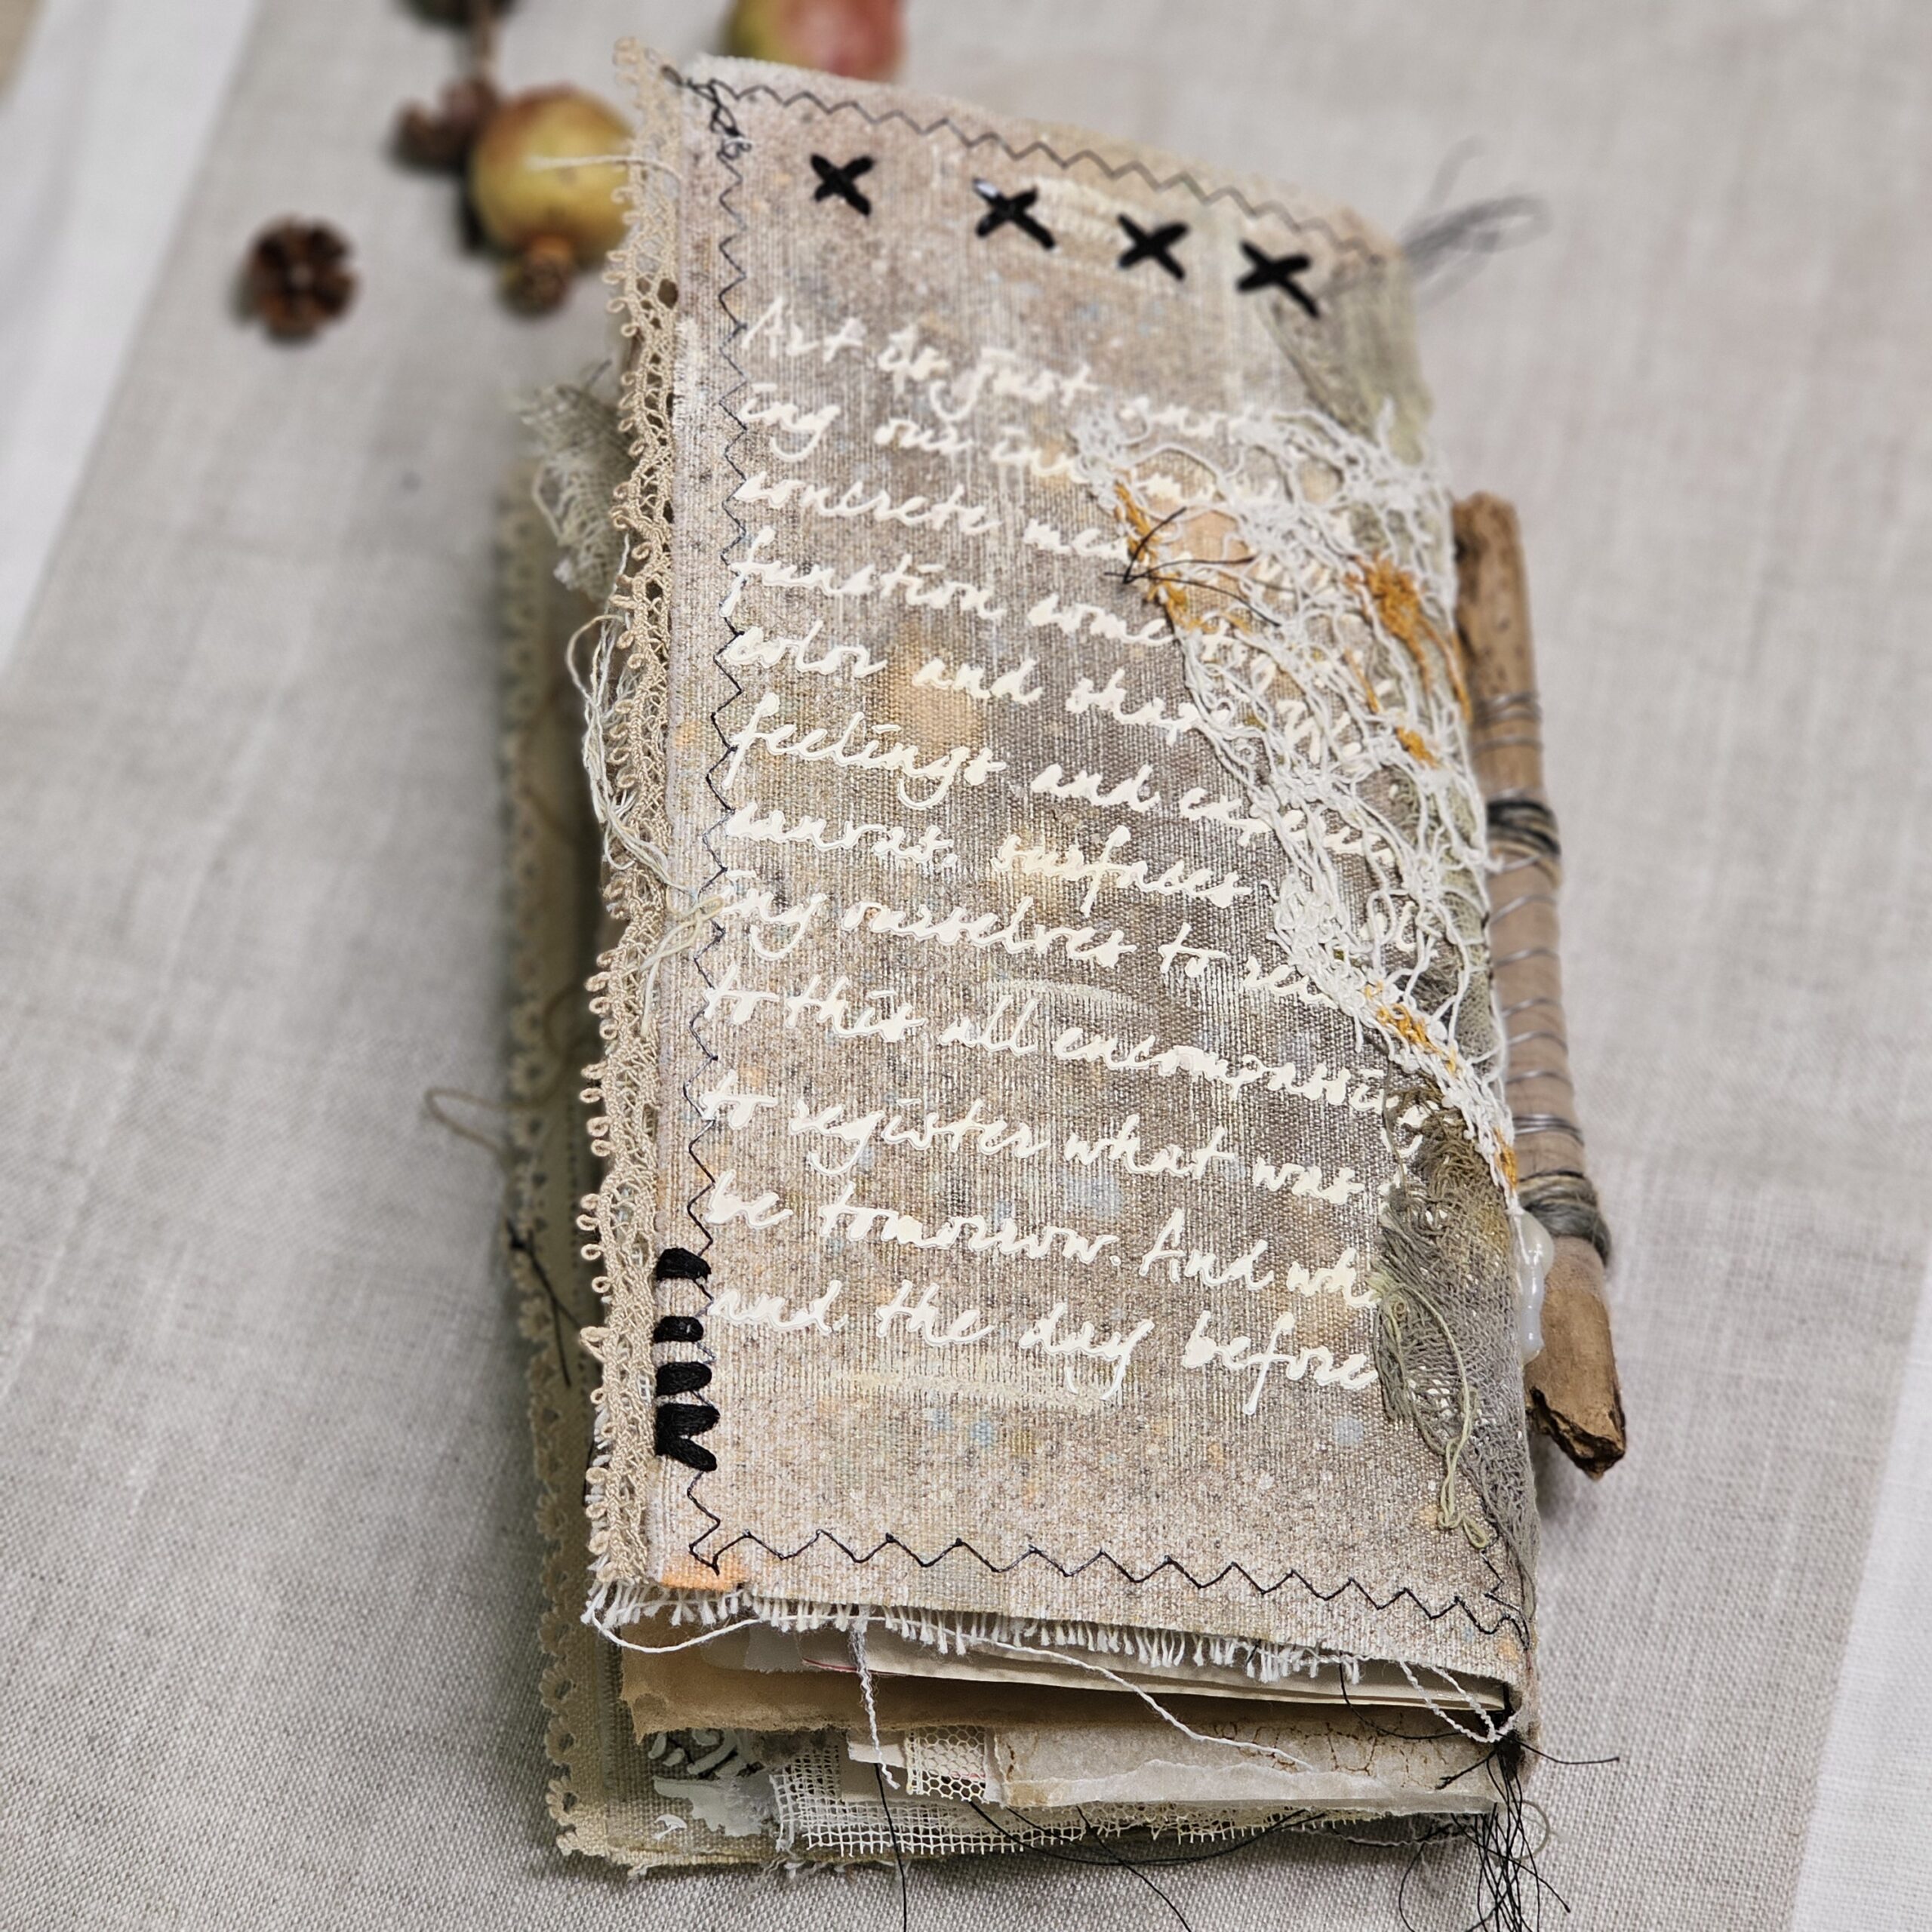 Art is just
ing our
concrete
function some
color and shape
feelings and
canvas, surfaces
ing ourselves to
to this all encompassing
to register what was
be tomorrow. And
and the day before